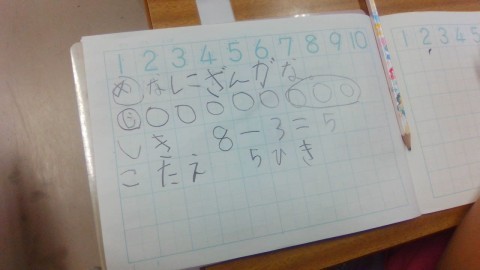 1 2 3 4 5 6 7 8 9 10
め なしにざんがな
ず ○○○○○○○○
しき 8-3=5
こたえ 5ひき
1 2 3 4 5